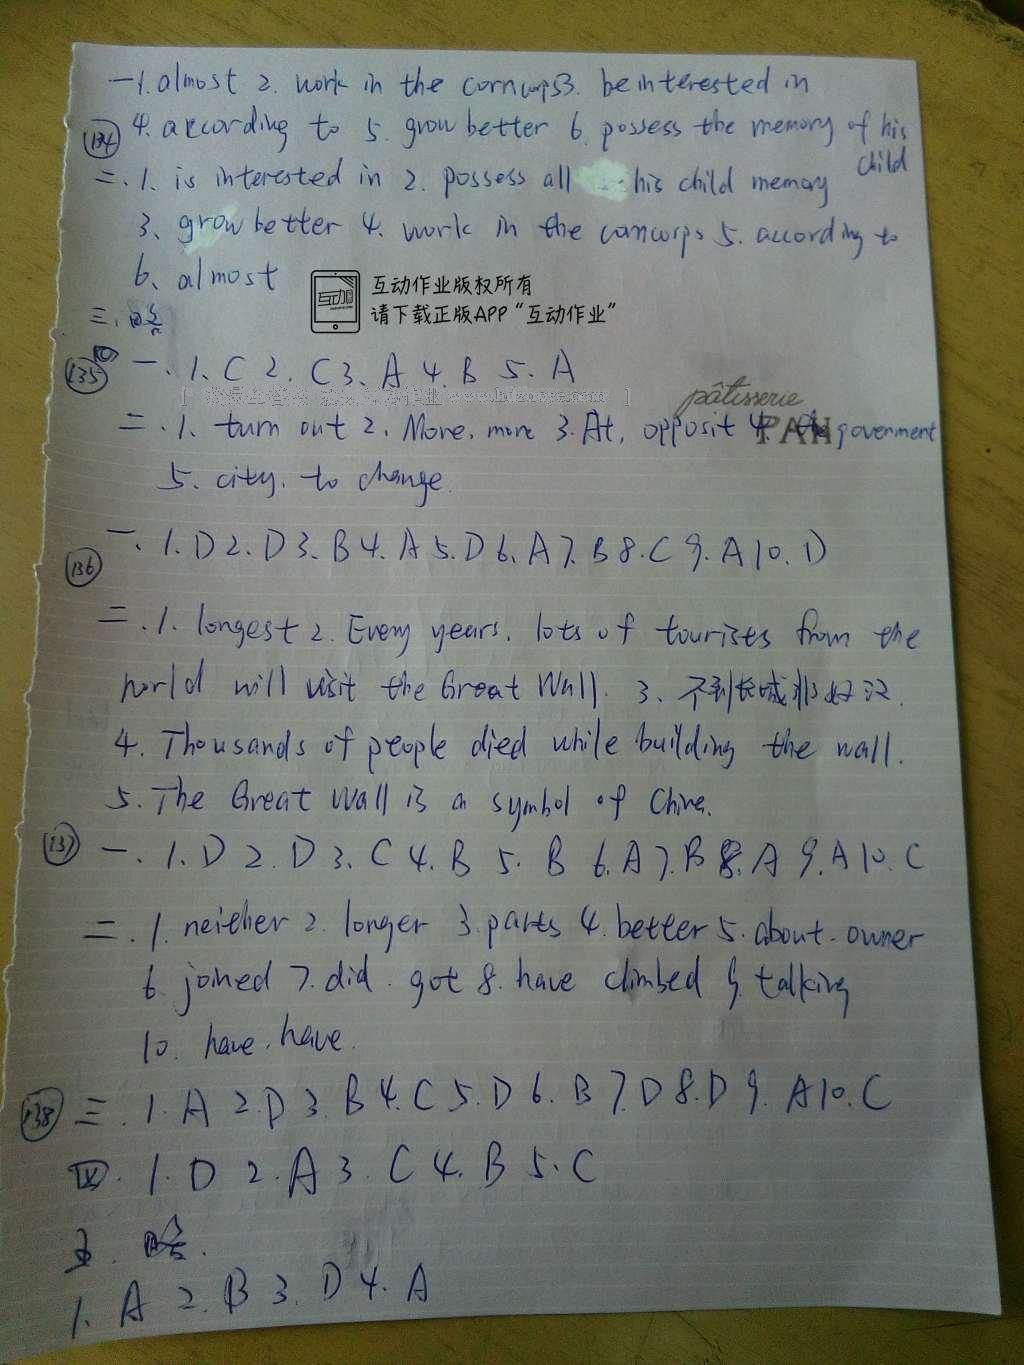 一 1. almost 2. work in the corncorps 3. be interested in
134
4. according to 5. grow better 6. possess the memory of his child
二. 1. is interested in 2. possess all his child memory
3. grow better 4. work in the corncorps 5. according to
6. almost
互动作业版权所有
请下载正版APP“互动作业”
三. 略
135
一. 1. C 2. C 3. A 4. B 5. A
pâtisserie
PAH
二. 1. turn out 2. More, more 3. At, opposit 4. the goverment
5. city. to change.
136
一. 1. D 2. D 3. B 4. A 5. D 6. A 7. B 8. C 9. A 10. D
二. 1. longest 2. Every years. lots of tourists from the
world will visit the Great Wall. 3. 不到长城非好汉.
4. Thousands of people died while building the wall.
5. The Great Wall is a symbol of China.
137
一. 1. D 2. D 3. C 4. B 5. B 6. A 7. B 8. A 9. A 10. C
二. 1. neither 2. longer 3. parts 4. better 5. about. owner
6. joined 7. did. got 8. have climbed 9. talking
10. have. have.
138
三. 1. A 2. D 3. B 4. C 5. D 6. B 7. D 8. D 9. A 10. C
四. 1. D 2. A 3. C 4. B 5. C
五. 略.
1. A 2. B 3. D 4. A